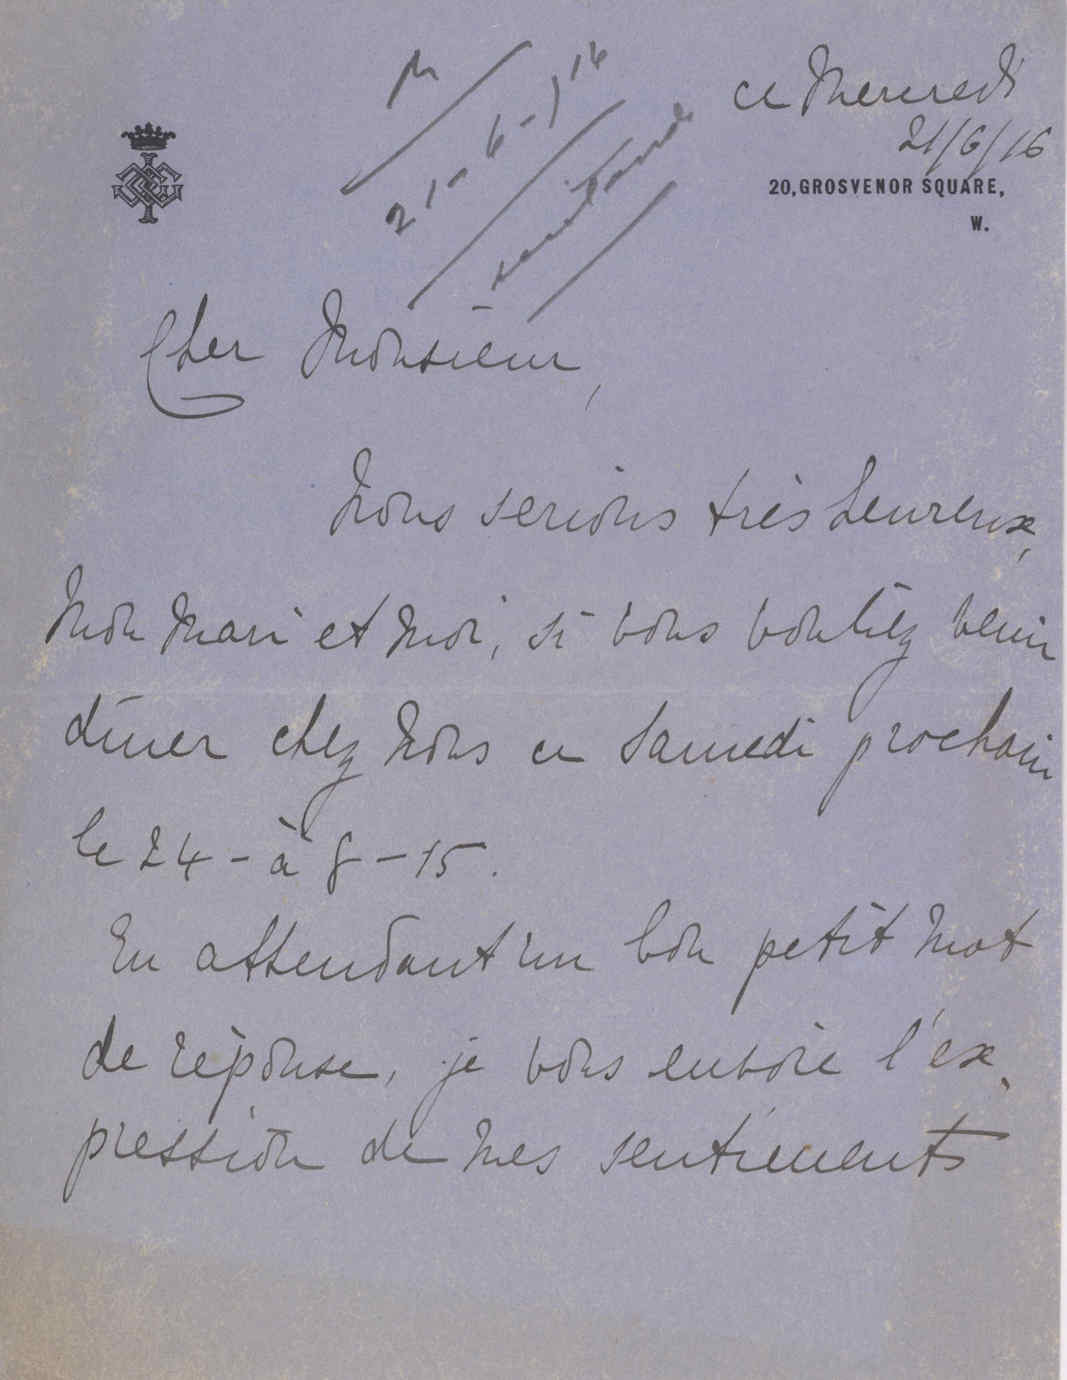 ce Mercredi
21/6/16
20, GROSVENOR SQUARE,
W.
21-6-16
Cher Monsieur,
Nous serions très heureux,
mon mari et moi, si vous vouliez venir
dîner chez nous ce Samedi prochain
le 24 - à 8 - 15.
En attendant un bon petit mot
de réponse, je vous envoie l'ex-
pression de mes sentiments